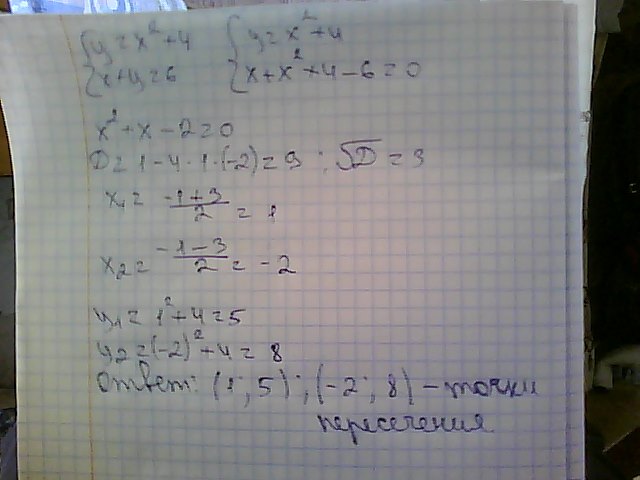 {y=x²+4 {y=x²+4
{x+y=6 {x+x²+4-6=0
x²+x-2=0
D=1-4·1·(-2)=9; √D=3
x₁= (-1+3)/2 = 1
x₂= (-1-3)/2 = -2
y₁=1²+4=5
y₂=(-2)²+4=8
ответ: (1;5); (-2;8) - точки
пересечения